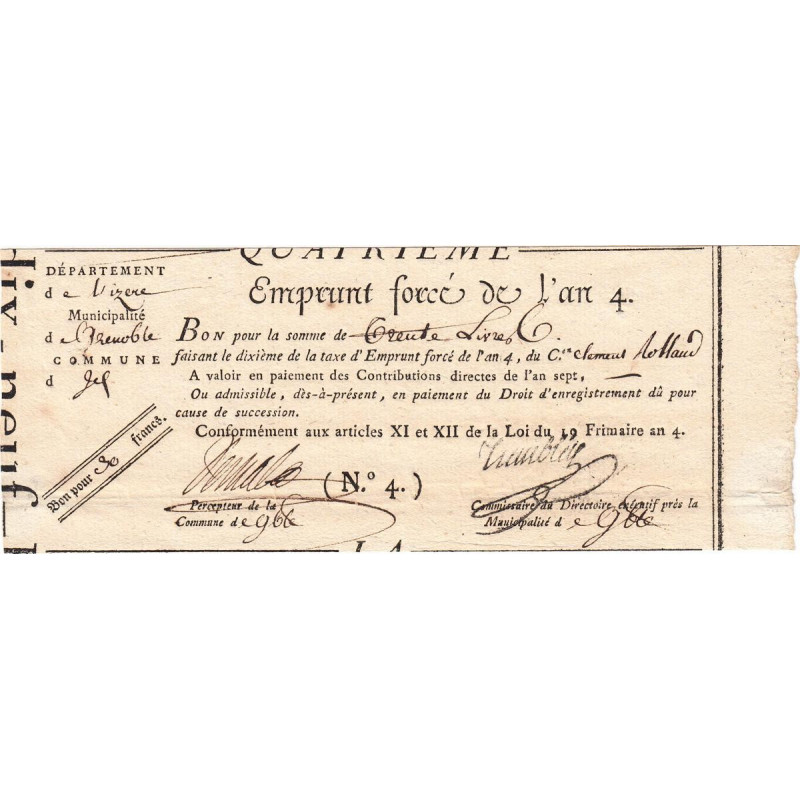 QUATRIEME
DÉPARTEMENT
de l'izere
Municipalité
de Grenoble
COMMUNE
d
Emprunt forcé de l'an 4.
BON pour la somme de Trente Livres
faisant le dixième de la taxe d'Emprunt forcé de l'an 4, du C.en Clement Rolland
A valoir en paiement des Contributions directes de l'an sept,
Ou admissible, dès-à-présent, en paiement du Droit d'enregistrement dû pour
cause de succession.
Conformément aux articles XI et XII de la Loi du 19 Frimaire an 4.
Bon pour 30 francs.
(N.º 4.)
Percepteur de la
Commune de gble
Commissaire du Directoire exécutif près la
Municipalité de gble
dix-neuf
LA